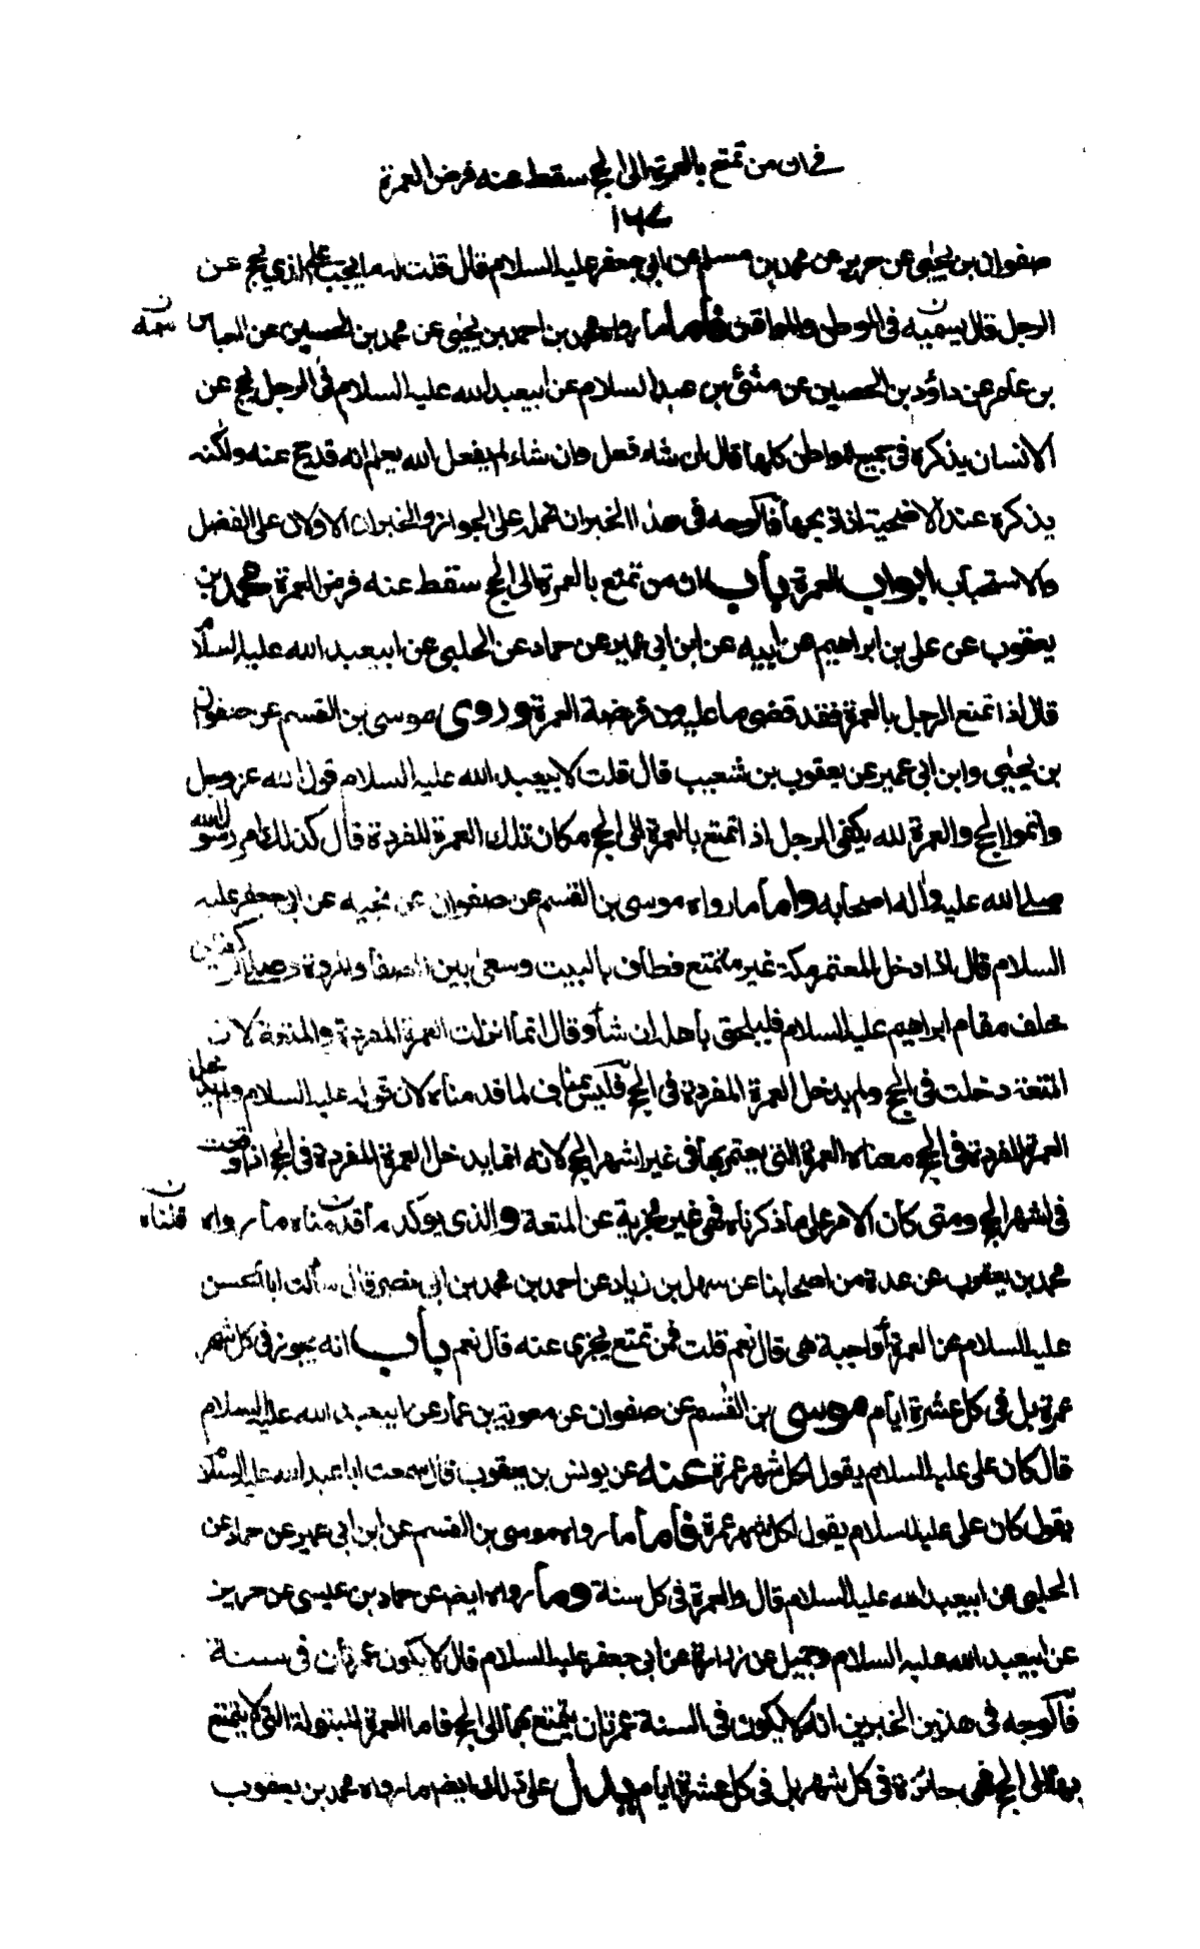 في ان من تمتع بالعمرة الى الحج سقط عنه فرض العمرة
١٦٧
صفوان بن يحيى عن حريز عن محمد بن مسلم عن ابي جعفر عليه السلام قال قلت له ما يجب على الذي يحج عن
الرجل قال يسميه في المواطن والمواقف فأما ما رواه محمد بن احمد بن يحيى عن محمد بن الحسين عن العباس
بن عامر عن داؤد بن الحصين عن مثنى بن عبد السلام عن ابيعبد الله عليه السلام في الرجل يحج عن
الانسان يذكره في جميع المواطن كلها قال ان شاء فعل وان شاء لم يفعل الله يعلم انه قد حج عنه ولكنه
يذكره عند الاضحية اذا ذبحها فالوجه في هذا الخبر ان نحمله على الجواز والخبران الاولان على الفضل
والاستحباب ابواب العمرة باب ان من تمتع بالعمرة الى الحج سقط عنه فرض العمرة محمد بن
يعقوب عن علي بن ابراهيم عن ابيه عن ابن ابي عمير عن حماد عن الحلبي عن ابيعبد الله عليه السلام
قال اذا تمتع الرجل بالعمرة فقد قضى ما عليه من فريضة العمرة وروى موسى بن القسم عن صفوان
بن يحيى وابن ابي عمير عن يعقوب بن شعيب قال قلت لابيعبد الله عليه السلام قول الله عز وجل
واتموا الحج والعمرة لله يكفى الرجل اذا تمتع بالعمرة الى الحج مكان تلك العمرة المفردة قال كذلك امر رسول الله
صلى الله عليه وآله اصحابه واما ما رواه موسى بن القسم عن صفوان عن نجيه عن ابي جعفر عليه
السلام قال اذا دخل المعتمر مكة غير متمتع فطاف بالبيت وسعى بين الصفا والمروة وصلى الركعتين
خلف مقام ابراهيم عليه السلام فليلحق باهله ان شاء وقال انما انزلت العمرة المفردة والمتعة لان
المتعة دخلت في الحج ولم يدخل العمرة المفردة في الحج فليس بمناف لما قدمناه لان قوله عليه السلام ولم يدخل
العمرة المفردة في الحج معناه العمرة التي يعتمر بها في غير اشهر الحج لانه انما يدخل العمرة المفردة في الحج اذا وقعت
في اشهر الحج ومتى كان الامر على ما ذكرناه فهي غير مجزية عن المتعة والذي يؤكد ما قدمناه ما رواه
قلناه
محمد بن يعقوب عن عدة من اصحابنا عن سهل بن زياد عن احمد بن محمد بن ابي نصر قال سألت ابا الحسن
عليه السلام عن العمرة أواجبة هي قال نعم قلت فمن تمتع يجزي عنه قال نعم باب انه يجوز في كل شهر
عمرة بل في كل عشرة ايام موسى بن القسم عن صفوان عن معوية بن عمار عن ابيعبد الله عليه السلام
قال كان علي عليه السلام يقول لكل شهر عمرة عنه عن يونس بن يعقوب قال سمعت ابا عبد الله عليه السلام
يقول كان علي عليه السلام يقول لكل شهر عمرة فأما ما رواه موسى بن القسم عن ابن ابي عمير عن حماد عن
الحلبي عن ابيعبد الله عليه السلام قال والعمرة في كل سنة وما رواه ايضا عن حماد بن عيسى عن حريز
عن ابيعبد الله عليه السلام وجميل عن زرارة عن ابي جعفر عليه السلام قال لا يكون عمرتان في سنة
فالوجه في هذين الخبرين انه لا يكون في السنة عمرتان يتمتع بها الى الحج فاما العمرة المبتولة التي لا يتمتع
بها الى الحج فهي جائزة في كل شهر بل في كل عشرة ايام يدل على ذلك ايضا ما رواه محمد بن يعقوب